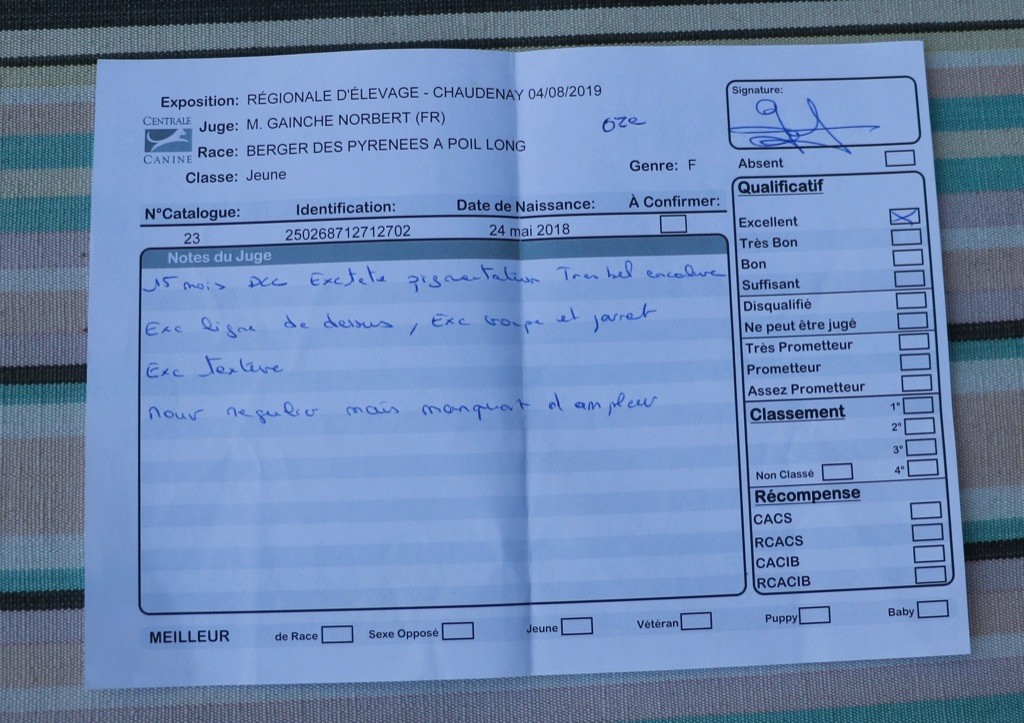 Exposition: RÉGIONALE D'ÉLEVAGE - CHAUDENAY 04/08/2019
CENTRALE
CANINE
Juge: M. GAINCHE NORBERT (FR)
Race: BERGER DES PYRENEES A POIL LONG
Classe: Jeune
Genre: F
Signature:
Absent
N°Catalogue: Identification: Date de Naissance: À Confirmer:
23 250268712712702 24 mai 2018
Notes du Juge
15 mois Exc tete pigmentation Tres bel encolure
Exc ligne de dessus, Exc croupe et jarret
Exc Texture
mouv regulier mais manquant d ampleur
Qualificatif
Excellent
Très Bon
Bon
Suffisant
Disqualifié
Ne peut être jugé
Très Prometteur
Prometteur
Assez Prometteur
Classement
1°
2°
3°
Non Classé 4°
Récompense
CACS
RCACS
CACIB
RCACIB
MEILLEUR de Race Sexe Opposé Jeune Vétéran Puppy Baby